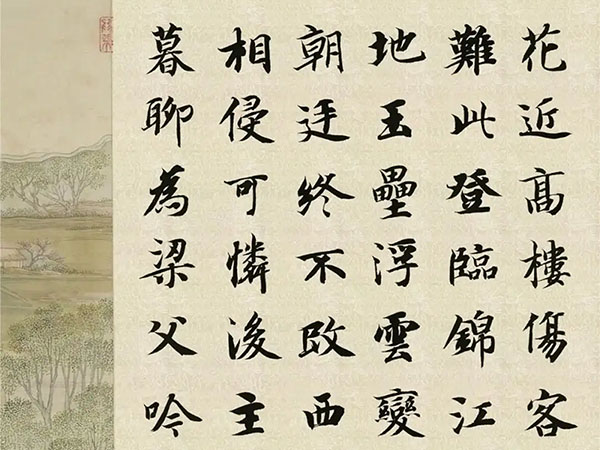 花近高樓傷客
難此登臨錦江
地玉壘浮雲變
朝廷終不改西
相侵可憐後主
暮聊為梁父吟